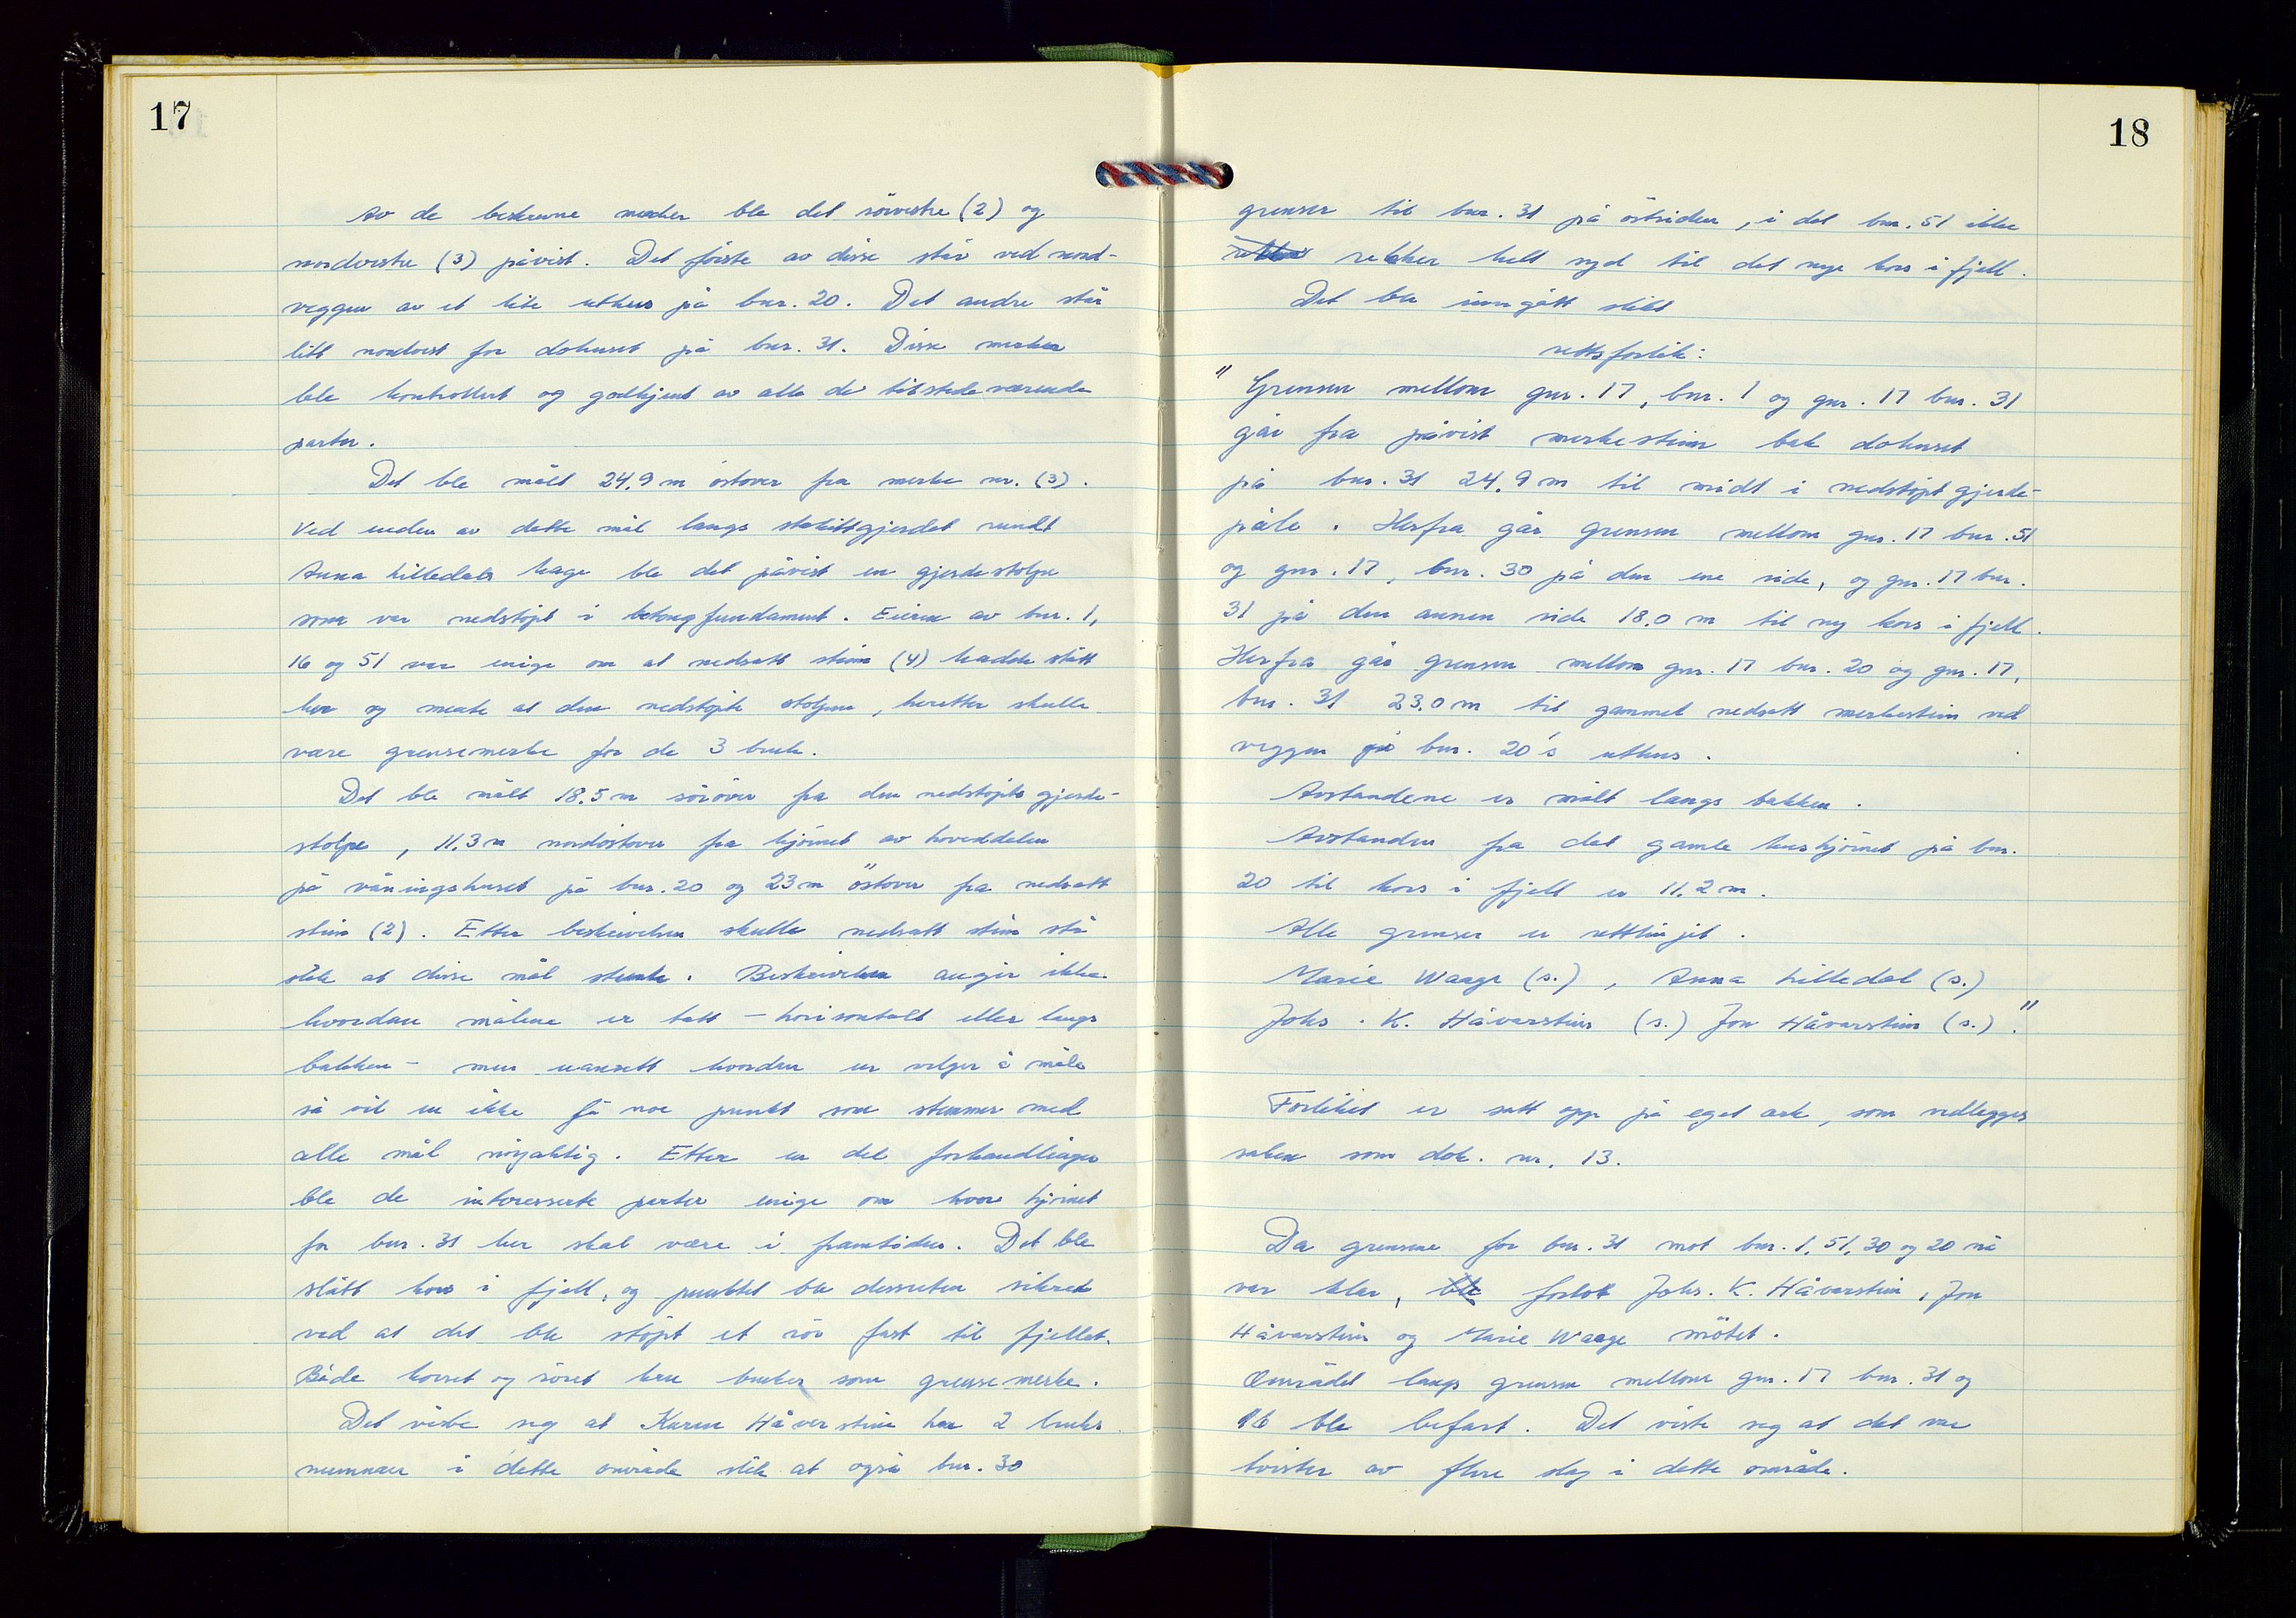 17
Av de beskrevne merker ble det sörvestre (2) og
nordvestre (3) påvist. Det förste av disse står ved nord-
veggen av et lite uthus på bnr. 20. Det andre står
litt nordvest for dohuset på bnr. 31. Disse merker
ble kontrollert og godkjent av alle de tilstedeværende
parter.
Det ble målt 24.9 m östover fra merke nr. (3).
Ved enden av dette mål langs stakittgjerdet rundt
Anna Lilledals hage ble det påvist en gjerdestolpe
som var nedstöpt i betongfundament. Eieren av bnr. 1,
16 og 51 var enige om at nedsatt stein (4) hadde stått
her og mente at den nedstöpte stolpen, heretter skulle
være grensemerke for de 3 bruk.
Det ble målt 18.5 m söröver fra den nedstöpte gjerde-
stolpe, 11.3 m nordöstover fra hjörnet av hoveddelen
på våningshuset på bnr. 20 og 23 m östover fra nedsatt
stein (2). Etter beskrivelsen skulle nedsatt stein stå
slik at disse mål stemte. Beskrivelsen angir ikke
hvordan målene er tatt – horisontalt eller langs
bakken – men uansett hvordan en velger å måle
så vil en ikke få noe punkt som stemmer med
alle mål nöyaktig. Etter en del forhandlinger
ble de interesserte parter enige om hvor hjörnet
for bnr. 31 her skal være i framtiden. Det ble
slått kors i fjell, og punktet ble dessuten sikret
ved at det ble stöpt et rör fast til fjellet.
Både korset og röret kan brukes som grensemerke.
Det viste seg at Karen Håvarstein har 2 bruks
nummer i dette område slik at også bnr. 30
18
grenser til bnr. 31 på östsiden, i det bnr. 51 ikke
rekker helt syd til det nye kors i fjell.
Det ble inngått slikt
rettsforlik:
" Grensen mellom gnr. 17, bnr. 1 og gnr. 17 bnr. 31
går fra påvist merkestein bak dohuset
på bnr. 31 24.9 m til midt i nedstöpt gjerde-
påle. Herfra går grensen mellom gnr. 17 bnr. 51
og gnr. 17, bnr. 30 på den ene side, og gnr. 17 bnr.
31 på den annen side 18.0 m til ny kors i fjell.
Herfra går grensen mellom gnr. 17 bnr. 20 og gnr. 17,
bnr. 31 23.0 m til gammel nedsatt merkestein ved
veggen på bnr. 20's uthus.
Avstandene er målt langs bakken.
Avstanden fra det gamle hushjörnet på bnr.
20 til kors i fjell er 11.2 m.
Alle grenser er rettlinjet.
Marie Waage (s.), Anna Lilledal (s.)
Johs. K. Håvarstein (s.) Jon Håvarstein (s.)."
Forliket er satt opp på eget ark, som vedlegges
saken som dok. nr. 13.
Da grensene for bnr. 31 mot bnr. 1, 51, 30 og 20 nå
var klar, ble forlot Johs. K. Håvarstein, Jon
Håvarstein og Marie Waage mötet.
Området langs grensen mellom gnr. 17 bnr. 31 og
16 ble befart. Det viste seg at det var
tvister av flere slag i dette område.